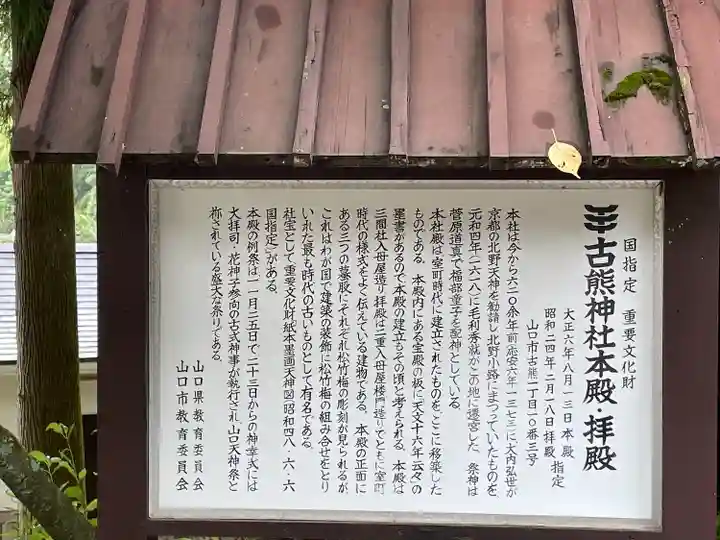 国指定 重要文化財
古熊神社本殿・拝殿
大正六年八月一三日 本殿
昭和二四年二月一八日 拝殿 指定
山口市古熊一丁目一〇番三号
本社は今から六二〇余年前応安六年(一三七三)に大内弘世が
京都の北野天神を勧請し北野小路にまつっていたものを
元和四年(一六一八)に毛利秀就がこの地に遷宮した。祭神は
菅原道真で福部童子を配神としている。
本社殿は室町時代に建立されたものを、ここに移築した
ものである。本殿内にある宝殿の板に「天文十六年云々」の
墨書があるので本殿の建立もその頃と考えられる。本殿は
三間社入母屋造り拝殿は二重入母屋楼門造りでともに室町
時代の様式をよく伝えている建物である。本殿の正面に
ある三つの蟇股にそれぞれ松竹梅の彫刻が見られるが、
これはわが国で建築の装飾に松竹梅の組み合せをとり
いれた最も時代の古いものとして有名である。
社宝として重要文化財紙本墨画天神図(昭和四八・六・六
国指定)がある。
本殿の例祭は一一月二五日で二十三日からの神幸式には
大拝司・花神子参向の古式神事が執行され「山口天神祭」と
称されている盛大な祭りである。
山口県教育委員会
山口市教育委員会